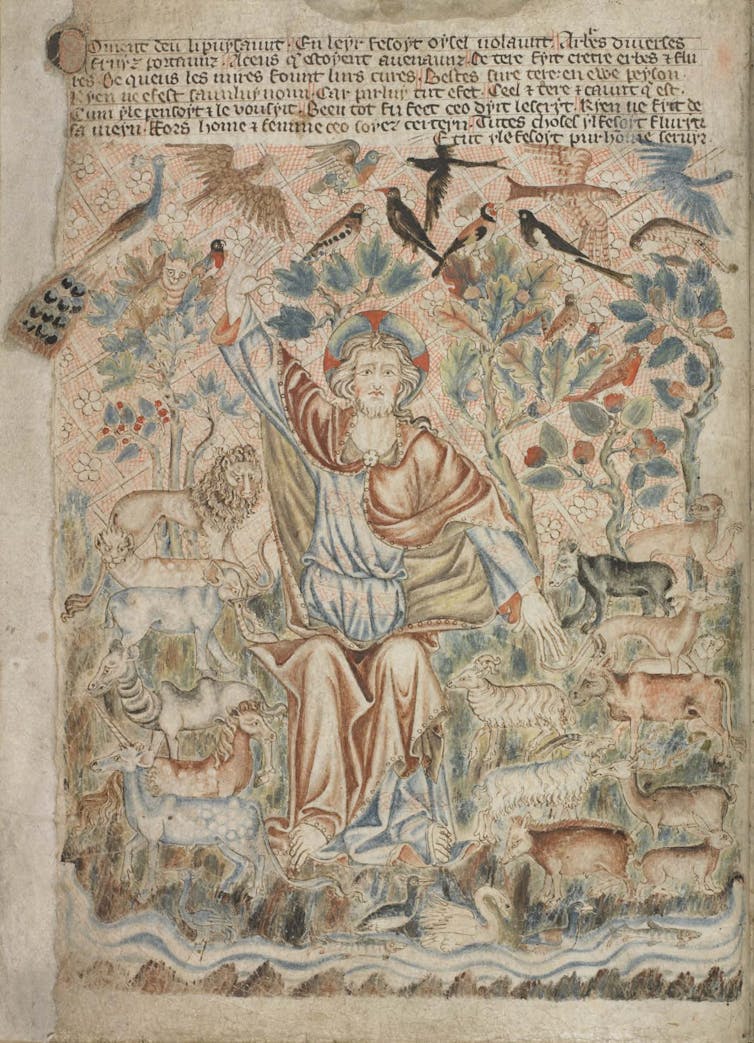 Coment deu li puysaunt · En leyr fesoyt oysel uolaunt · Arbres diuerses
fruyz portaunz · A ceus qe estoyent auenaunz · De tere fyit cretre erbes & flu
res · De queus les mires fount lurs cures · Bestes sure tere · en ewe peyson ·
Ryen ne efest saunz luy noun · Car par luy tut efet · Ceel & tere & caunt qe est ·
Cum yle pensoyt & le vousyit · Been tot fu feet ceo dyit lescryt · Ryen ne fyit de
sa meyn · Fors home & femme ceo soyez certeyn · Tuttes choses yl fesoyt fluryr
E tut yle fesoyt pur home seruyr